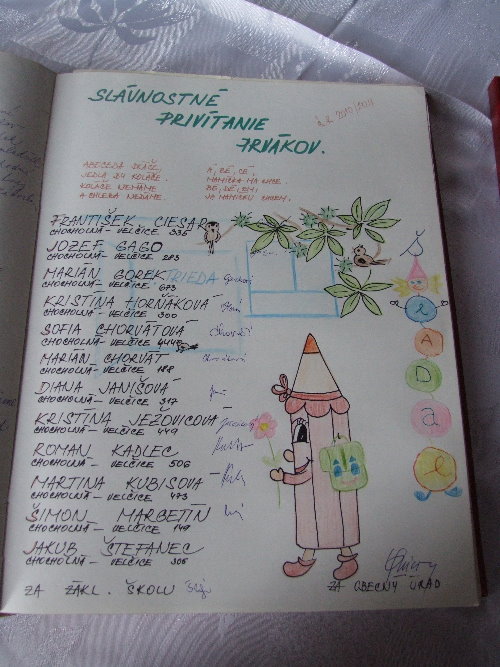 SLÁVNOSTNÉ
PRIVÍTANIE
PRVÁKOV.
2010/2011
ABECEDA SKÁČE, Á, BÉ, CÉ,
JEDLA BY KOLÁČE. MAMIČKA MA
KOLÁČE NEMÁME BÉ, DÉ,
A CHLEBA NEDÁME. JA MAMIČKU
FRANTIŠEK CIESAR
CHOCHOLNÁ - VELČICE 335
JOZEF GAGO
CHOCHOLNÁ - VELČICE 283
MARIÁN GOREK TRIEDA
CHOCHOLNÁ - VELČICE 673
KRISTÍNA HORŇÁKOVÁ
CHOCHOLNÁ - VELČICE 300
SOFIA CHORVÁTOVÁ
CHOCHOLNÁ - VELČICE
MARIÁN CHORVÁT
CHOCHOLNÁ - VELČICE 188
DIANA JANIŠOVÁ
CHOCHOLNÁ - VELČICE 317
KRISTÍNA JEŽOVICOVÁ
CHOCHOLNÁ - VELČICE 449
ROMAN KADLEC
CHOCHOLNÁ - VELČICE 506
MARTINA KUBISOVÁ
CHOCHOLNÁ - VELČICE 473
ŠIMON MARGETÍN
CHOCHOLNÁ - VELČICE 149
JAKUB ŠTEFANEC
CHOCHOLNÁ - VELČICE 305
ZA ZÁKL. ŠKOLU ZA OBECNÝ ÚRAD